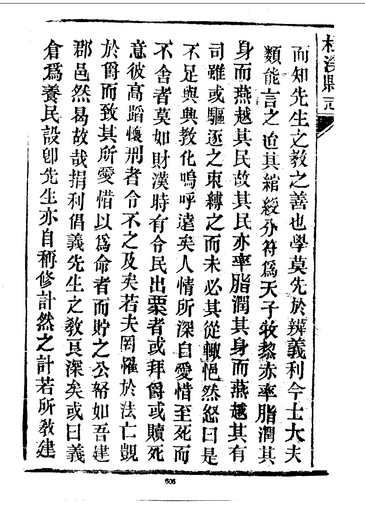 而知先生之教之善也學莫先於辨義利今士大夫
類能言之迨其綰綬分符爲天子牧黎赤率脂潤其
身而燕越其民故其民亦率脂潤其身而燕越其有
司雖或驅逐之束縛之而未必其從輙悒然怒曰是
不足與興教化嗚呼遠矣人情所深自愛惜至死而
不舍者莫如財漢時有令民出粟者或拜爵或贖死
意彼高蹈懷刑者令不之及矣若夫罔罹於法亡覬
於爵而致其所愛惜以爲命者而貯之公帑如吾建
郡邑然昜故哉捐利倡義先生之教良深矣或曰義
倉爲養民設卽先生亦自稱修計然之計若所教建
縣志
605